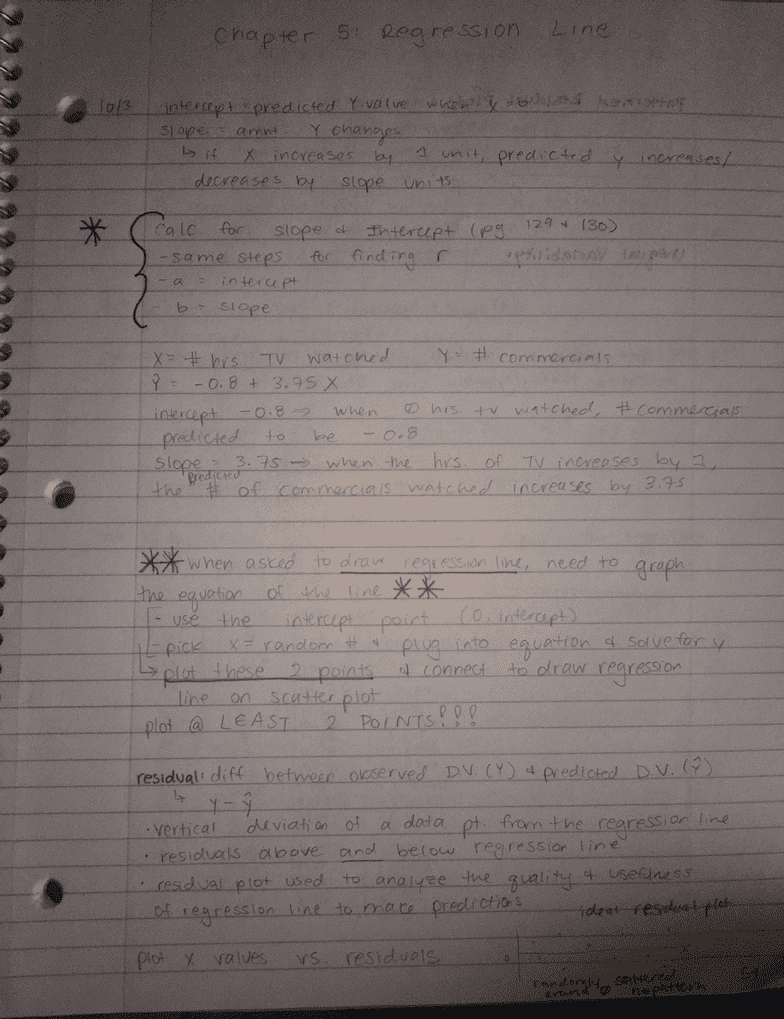 Chapter 5: Regression Line
10/3 intercept = predicted Y value when x
slope = amnt. Y changes
↳ if X increases by 1 unit, predicted y increases/
decreases by slope units
* Calc for slope & Intercept (pg 129 & 130)
- same steps for finding r
- a = intercept
- b = slope
X = # hrs. TV watched Y = # commercials
Ŷ = -0.8 + 3.75 X
inercept -0.8 → when 0 hrs. tv watched, # commercials
predicted to be -0.8
slope = 3.75 → when the hrs. of TV increases by 1,
predicted
the # of commercials watched increases by 3.75
** when asked to draw regression line, need to graph
the equation of the line **
- use the intercept point (0, intercept)
- pick x = random # & plug into equation & solve for y
↳ plot these 2 points & connect to draw regression
line on scatterplot
plot @ LEAST 2 POINTS!!!
residual: diff between observed D.V. (Y) & predicted D.V. (ŷ)
↳ y - ŷ
· vertical deviation of a data pt. from the regression line
· residuals above and below regression line
· residual plot used to analyze the quality & usefulness
of regression line to make predictions
ideal residual plot
plot x values vs. residuals
0
randomly scattered
around 0 no pattern